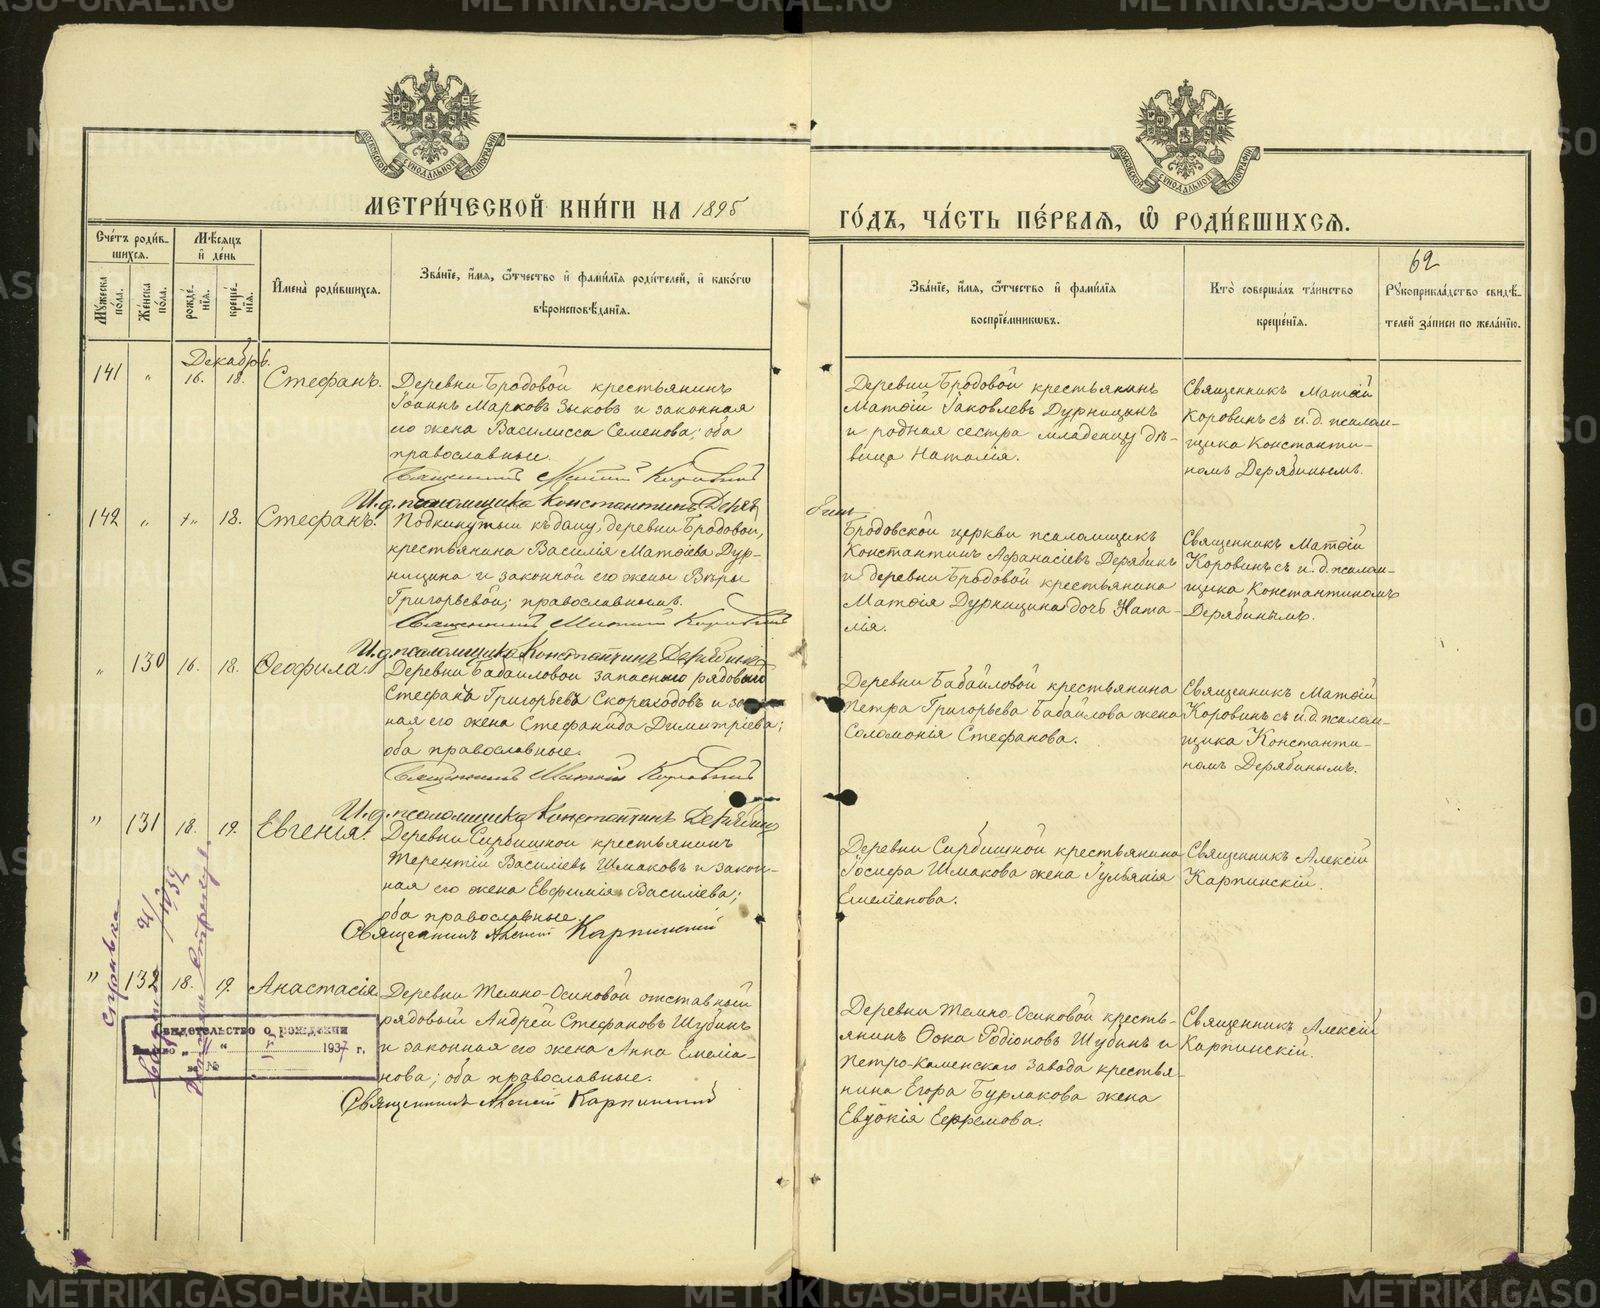 МЕТРИ́ЧЕСКОЙ КНИ́ГИ НА 1895
ГО́ДЪ, ЧА́СТЬ ПЕ́РВАЯ, Ѡ҆ РОДИ́ВШИХСЯ.
62
Сче́тъ роди́в-
шихся.
Мѣ́сяцъ
и҆ де́нь
Му́жеска
по́ла.
Же́нска
по́ла.
рожде́-
нїя.
креще́-
нїя.
И҆мена̀ роди́вшихся.
Зва́нїе, и҆́мя, ѻ҆́тчество и҆ фами́лїя роди́телей, и҆ како́гѡ
вѣроисповѣ́данїя.
Зва́нїе, и҆́мя, ѻ҆́тчество и҆ фами́лїя
воспрїе́мникѡвъ.
Кто̀ соверша́лъ та́инство
креще́нїя.
Рꙋкоприкла́дство свидѣ́-
телей за́писи по жела́нїю.
Декабрь.
141 " 16. 18. Стефанъ.
Деревни Бродовой крестьянинъ
Іоаннъ Марковъ Зыковъ и законная
его жена Василисса Семенова; оба
православные.
Священникъ Матѳій Коровинъ
И.д. псаломщика Константинъ Дерябинъ
Деревни Бродовой крестьянинъ
Матѳій Іаковлевъ Дурницинъ
и родная сестра младенцу дѣ-
вица Наталія.
Священникъ Матѳій
Коровинъ съ и.д. псалом-
щика Константи-
номъ Дерябинымъ.
142 " 18. Стефанъ.
Подкинутый къ дому, деревни Бродовой,
крестьянина Василія Матѳіева Дур-
ницина и законной его жены Вѣры
Григорьевой; православнымъ.
Священникъ Матѳій Коровинъ
И.д. псаломщика Константинъ Дерябинъ
Бродовской церкви псаломщикъ
Константинъ Аѳанасіевъ Дерябинъ
и деревни Бродовой крестьянина
Матѳія Дурницина дочь Ната-
лія.
Священникъ Матѳій
Коровинъ съ и.д. псалом-
щика Константиномъ
Дерябинымъ.
" 130 16. 18. Ѳеофила.
Деревни Бабайловой запасный рядовый
Стефанъ Григорьевъ Скороходовъ и закон-
ная его жена Стефанида Димитріева;
оба православные.
Священникъ Матѳій Коровинъ
И.д. псаломщика Константинъ Дерябинъ
Деревни Бабайловой крестьянина
Петра Григорьева Бабайлова жена
Соломонія Стефанова.
Священникъ Матѳій
Коровинъ съ и.д. псалом-
щика Константи-
номъ Дерябинымъ.
" 131 18. 19. Евгенія.
Деревни Сирбишной крестьянинъ
Терентій Василіевъ Шмаковъ и закон-
ная его жена Евфимія Василіева;
оба православные.
Священникъ Алексій Карпинскій
Деревни Сирбишной крестьянина
Іосифа Шмакова жена Іуліанія
Емеліанова.
Священникъ Алексій
Карпинскій.
" 132 18. 19. Анастасія
Деревни Темно-Осиновой отставный
рядовый Андрей Стефановъ Шубинъ
и законная его жена Анна Емеліа-
нова; оба православные.
Священникъ Алексій Карпинскій
Деревни Темно-Осиновой кресть-
янинъ Ѳока Родіоновъ Шубинъ и
Петро-Каменскаго завода крестья-
нина Егора Бурлакова жена
Евдокія Ефремова.
Священникъ Алексій
Карпинскій.
справка
Свидетельство о рождении
1937 г.
за №
METRIKI.GASO-URAL.RU